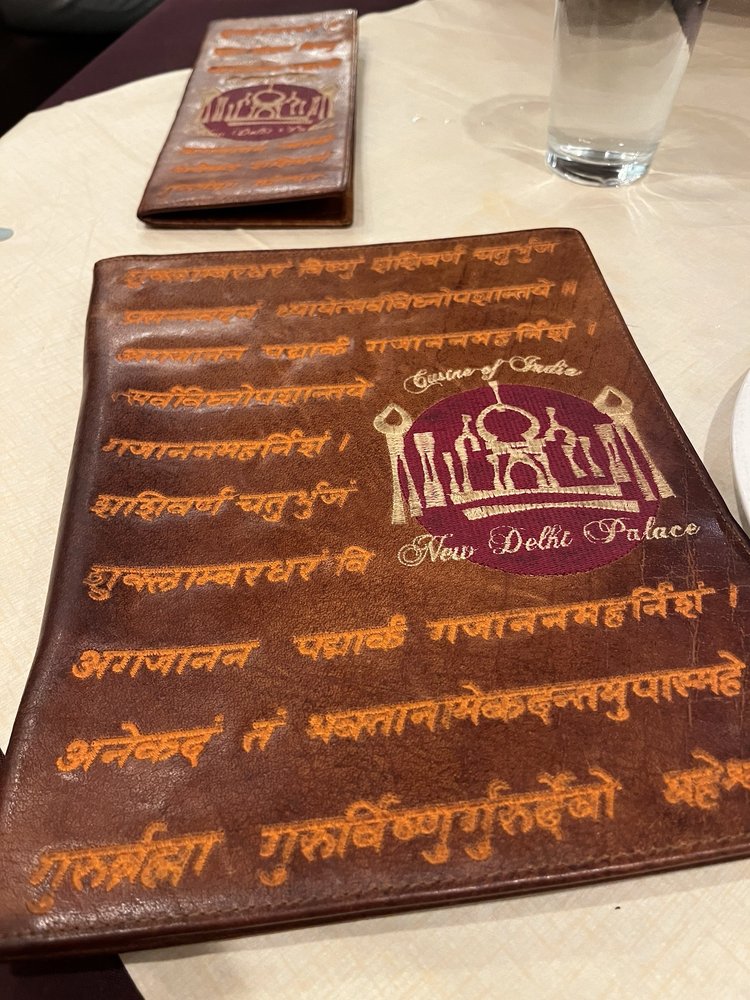 शुक्लाम्बरधरं विष्णुं शशिवर्णं चतुर्भुजं
प्रसन्नवदनं ध्यायेत्सर्वविघ्नोपशान्तये ॥
अगजानन पद्मार्कं गजाननमहर्निशं ।
सर्वविघ्नोपशान्तये
गजाननमहर्निशं ।
शशिवर्णं चतुर्भुजं
शुक्लाम्बरधरं वि
अगजानन पद्मार्कं गजाननमहर्निशं ।
अनेकदं तं भक्तानामेकदन्तमुपास्महे
गुरुर्ब्रह्मा गुरुर्विष्णुर्गुरुर्देवो
Cuisine of India
New Delhi Palace